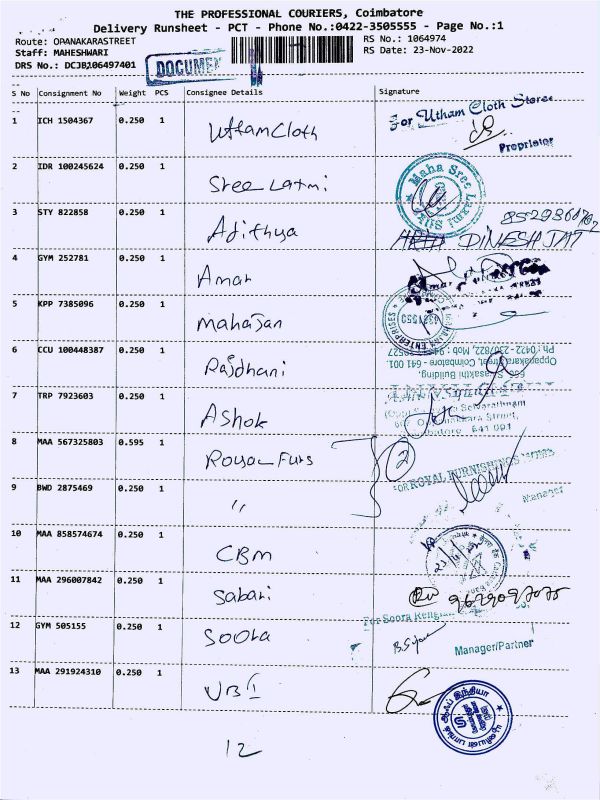 THE PROFESSIONAL COURIERS, Coimbatore
Delivery Runsheet - PCT - Phone No.:0422-3505555 - Page No.:1
Route: OPANAKARASTREET
RS No.: 1064974
Staff: MAHESHWARI
RS Date: 23-Nov-2022
DRS No.: DCJB106497401
DOCUMEN
S No Consignment No Weight PCS Consignee Details Signature
1 ICH 1504367 0.250 1 Uttam Cloth
For Utham Cloth Stores
Proprietor
2 IDR 100245624 0.250 1 Sree Laxmi
Maha Sree Laxmi Silks
3 STY 822858 0.250 1 Adithya
DINESH JAT
4 GYM 252781 0.250 1 Amar
Amar
5 KPP 7385096 0.250 1 Mahajan
MAHAJAN ENTERPRISES
6 CCU 100448387 0.250 1 Rajdhani
656, Sivasakthi Building,
Oppanakara Street, Coimbatore - 641 001
7 TRP 7923603 0.250 1 Ashok
Selvarathnam
Street,
641 001
8 MAA 567325803 0.595 1 Royal Furs 2
FOR ROYAL FURNISHINGS
Manager
9 BWD 2875469 0.250 1 "
10 MAA 858574674 0.250 1 CBM
11 MAA 296007842 0.250 1 Sabari
12 GYM 505155 0.250 1 Soora
For Soora Religian
Manager/Partner
13 MAA 291924310 0.250 1 UBI
12